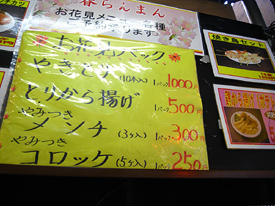 春らんまん
お花見メニュー各種
やきとり(10本入)1パック1000円
とりから揚げ 1パック500円
やみつき
メンチ(3ケ入)1パック300円
やみつき
コロッケ(5ケ入)1パック250円
焼き鳥セット